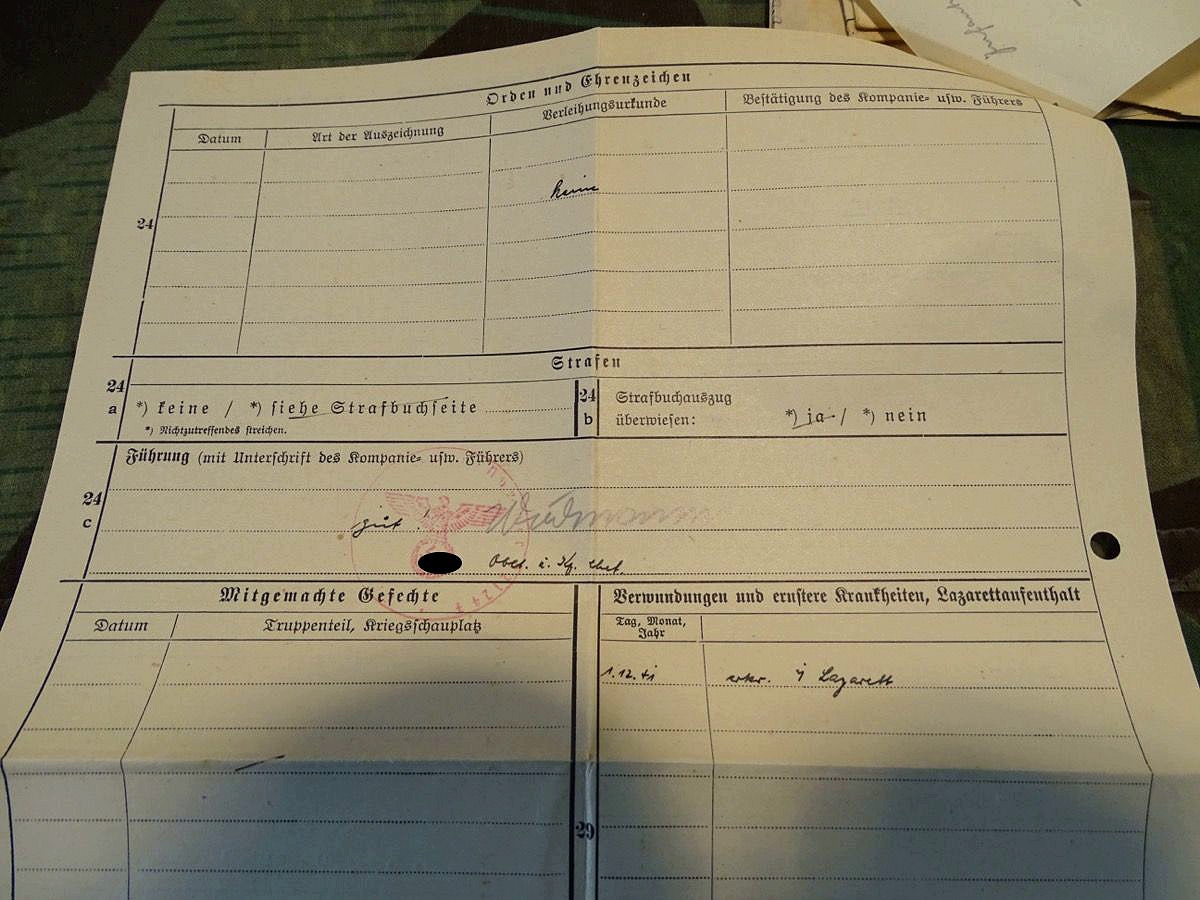 Orden und Ehrenzeichen
Datum
Art der Auszeichnung
Verleihungsurkunde
Bestätigung des Kompanie- usw. Führers
keine
24
Strafen
24
a
*) keine / *) siehe Strafbuchseite
*) Nichtzutreffendes streichen.
24
b
Strafbuchauszug
überwiesen: *) ja / *) nein
Führung (mit Unterschrift des Kompanie- usw. Führers)
24
c
gut!
Mitgemachte Gefechte
Datum
Truppenteil, Kriegsschauplatz
29
Verwundungen und ernstere Krankheiten, Lazarettaufenthalt
Tag, Monat,
Jahr
1.12.41 Lazarett